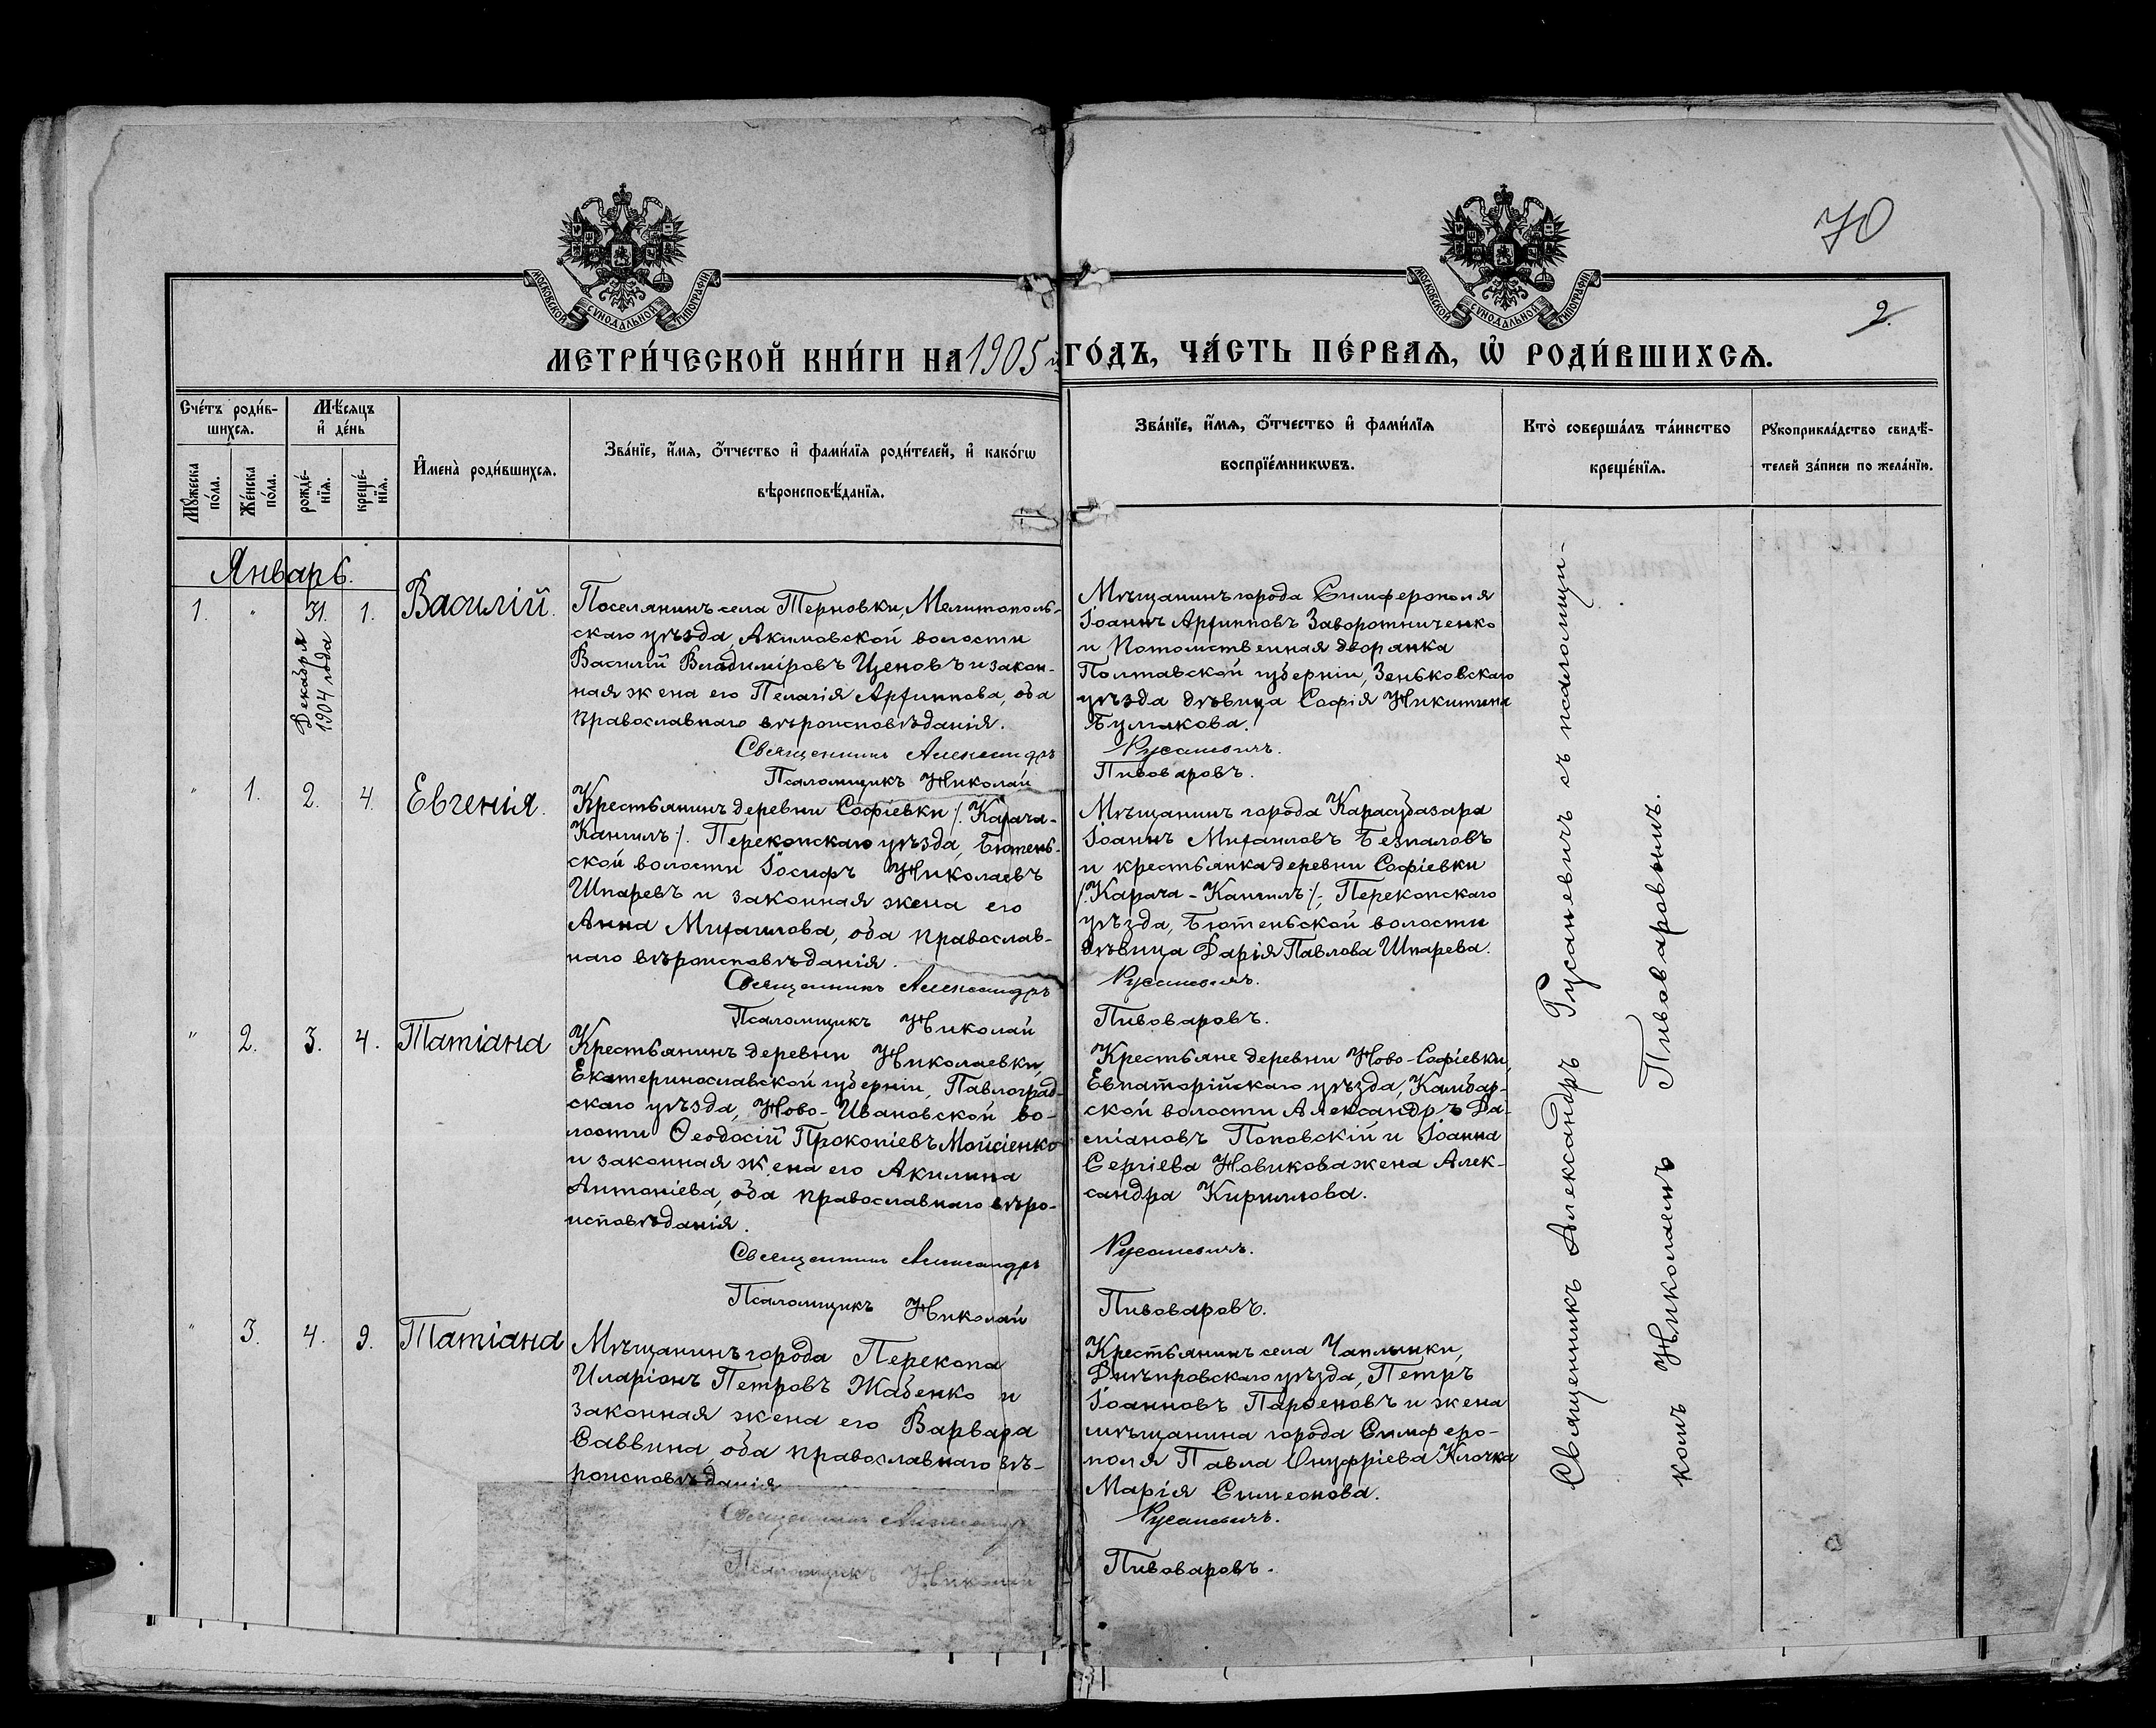 70
2.
МОСКОВСКОЙ СѴНОДАЛЬНОЙ ТИПОГРАФІИ
МОСКОВСКОЙ СѴНОДАЛЬНОЙ ТИПОГРАФІИ
МЕТРИ́ЧЕСКОЙ КНИ́ГИ НА 1905 й ГО́ДЪ, ЧА́СТЬ ПЕ́РВАѦ, Ѡ҆ РОДИ́ВШИХСѦ.
Счéтъ роди́в-
шихсѧ.
Мѣ́сѧцъ
и҆ дéнь
Мꙋ́жеска по́ла.
Жéнска по́ла.
рождé-
нїѧ.
крещé-
нїѧ.
И҆мена̀ роди́вшихсѧ.
Зва́нїе, и҆́мѧ, ѻ҆́тчество и҆ фами́лїѧ роди́телей, и҆ како́гѡ
вѣроисповѣ́данїѧ.
Зва́нїе, и҆́мѧ, ѻ҆́тчество и҆ фами́лїѧ
воспрїéмникѡвъ.
Кто̀ соверша́лъ та́инство
крещéнїѧ.
Рꙋкоприкла́дство свидѣ́-
телей за́писи по жела́нїю.
Январь.
1. " 31. 1. Василій.
Декабря
1904 года
Поселянинъ села Терновки, Мелитополь-
скаго уѣзда, Акимовской волости
Василій Владиміровъ Ценовъ и закон-
ная жена его Пелагія Архиппова, оба
православнаго вѣроисповѣданія.
Священникъ Александръ
Псаломщикъ Николай
Мѣщанинъ города Симферополя
Іоаннъ Архипповъ Заворотниченко
и Потомственная дворянка
Полтавской губерніи, Зеньковскаго
уѣзда дѣвица Софія Никитина
Русаневичъ.
Пивоваровъ.
" 1. 2. 4. Евгенія.
Крестьянинъ деревни Софіевки /. Карача-
Кангилъ ./. Перекопскаго уѣзда, Бютень-
ской волости Іосифъ Николаевъ
Шпаревъ и законная жена его
Анна Михаилова, оба православ-
наго вѣроисповѣданія.
Священникъ Александръ
Псаломщикъ Николай
Мѣщанинъ города Карасубазара
Іоаннъ Михаиловъ Безпаловъ
и крестьянка деревни Софіевки
/. Карача-Кангилъ ./; Перекопскаго
уѣзда, Бютеньской волости
дѣвица Дарія Павлова Шпарева.
Русаневичъ.
Пивоваровъ.
" 2. 3. 4. Татіана
Крестьянинъ деревни Николаевки,
Екатеринославской губерніи, Павлоград-
скаго уѣзда, Ново-Ивановской во-
лости Ѳеодосій Прокопіевъ Мойсіенко
и законная жена его Акилина
Антоніева, оба православнаго вѣро-
исповѣданія.
Священникъ Александръ
Псаломщикъ Николай
Крестьяне деревни Ново-Софіевки,
Евпаторійскаго уѣзда, Камбар-
ской волости Александръ Да-
міановъ Поповскій и Іоанна
Сергіева Новикова жена Алек-
сандра Кириллова.
Русаневичъ.
Пивоваровъ.
" 3. 4. 9. Татіана
Мѣщанинъ города Перекопа
Иларіонъ Петровъ Жабенко и
законная жена его Варвара
Саввина, оба православнаго вѣ-
роисповѣданія
Священникъ Александръ
Псаломщикъ Николай
Крестьянинъ села Чаплынки,
Днѣпровскаго уѣзда, Петръ
Іоанновъ Парѳеновъ и жена
мѣщанина города Симферо-
поля Павла Онуфріева Клочка
Марія Симеонова.
Русаневичъ.
Пивоваровъ.
Священникъ Александръ Русаневичъ съ псаломщи-
комъ Николаемъ Пивоваровымъ.